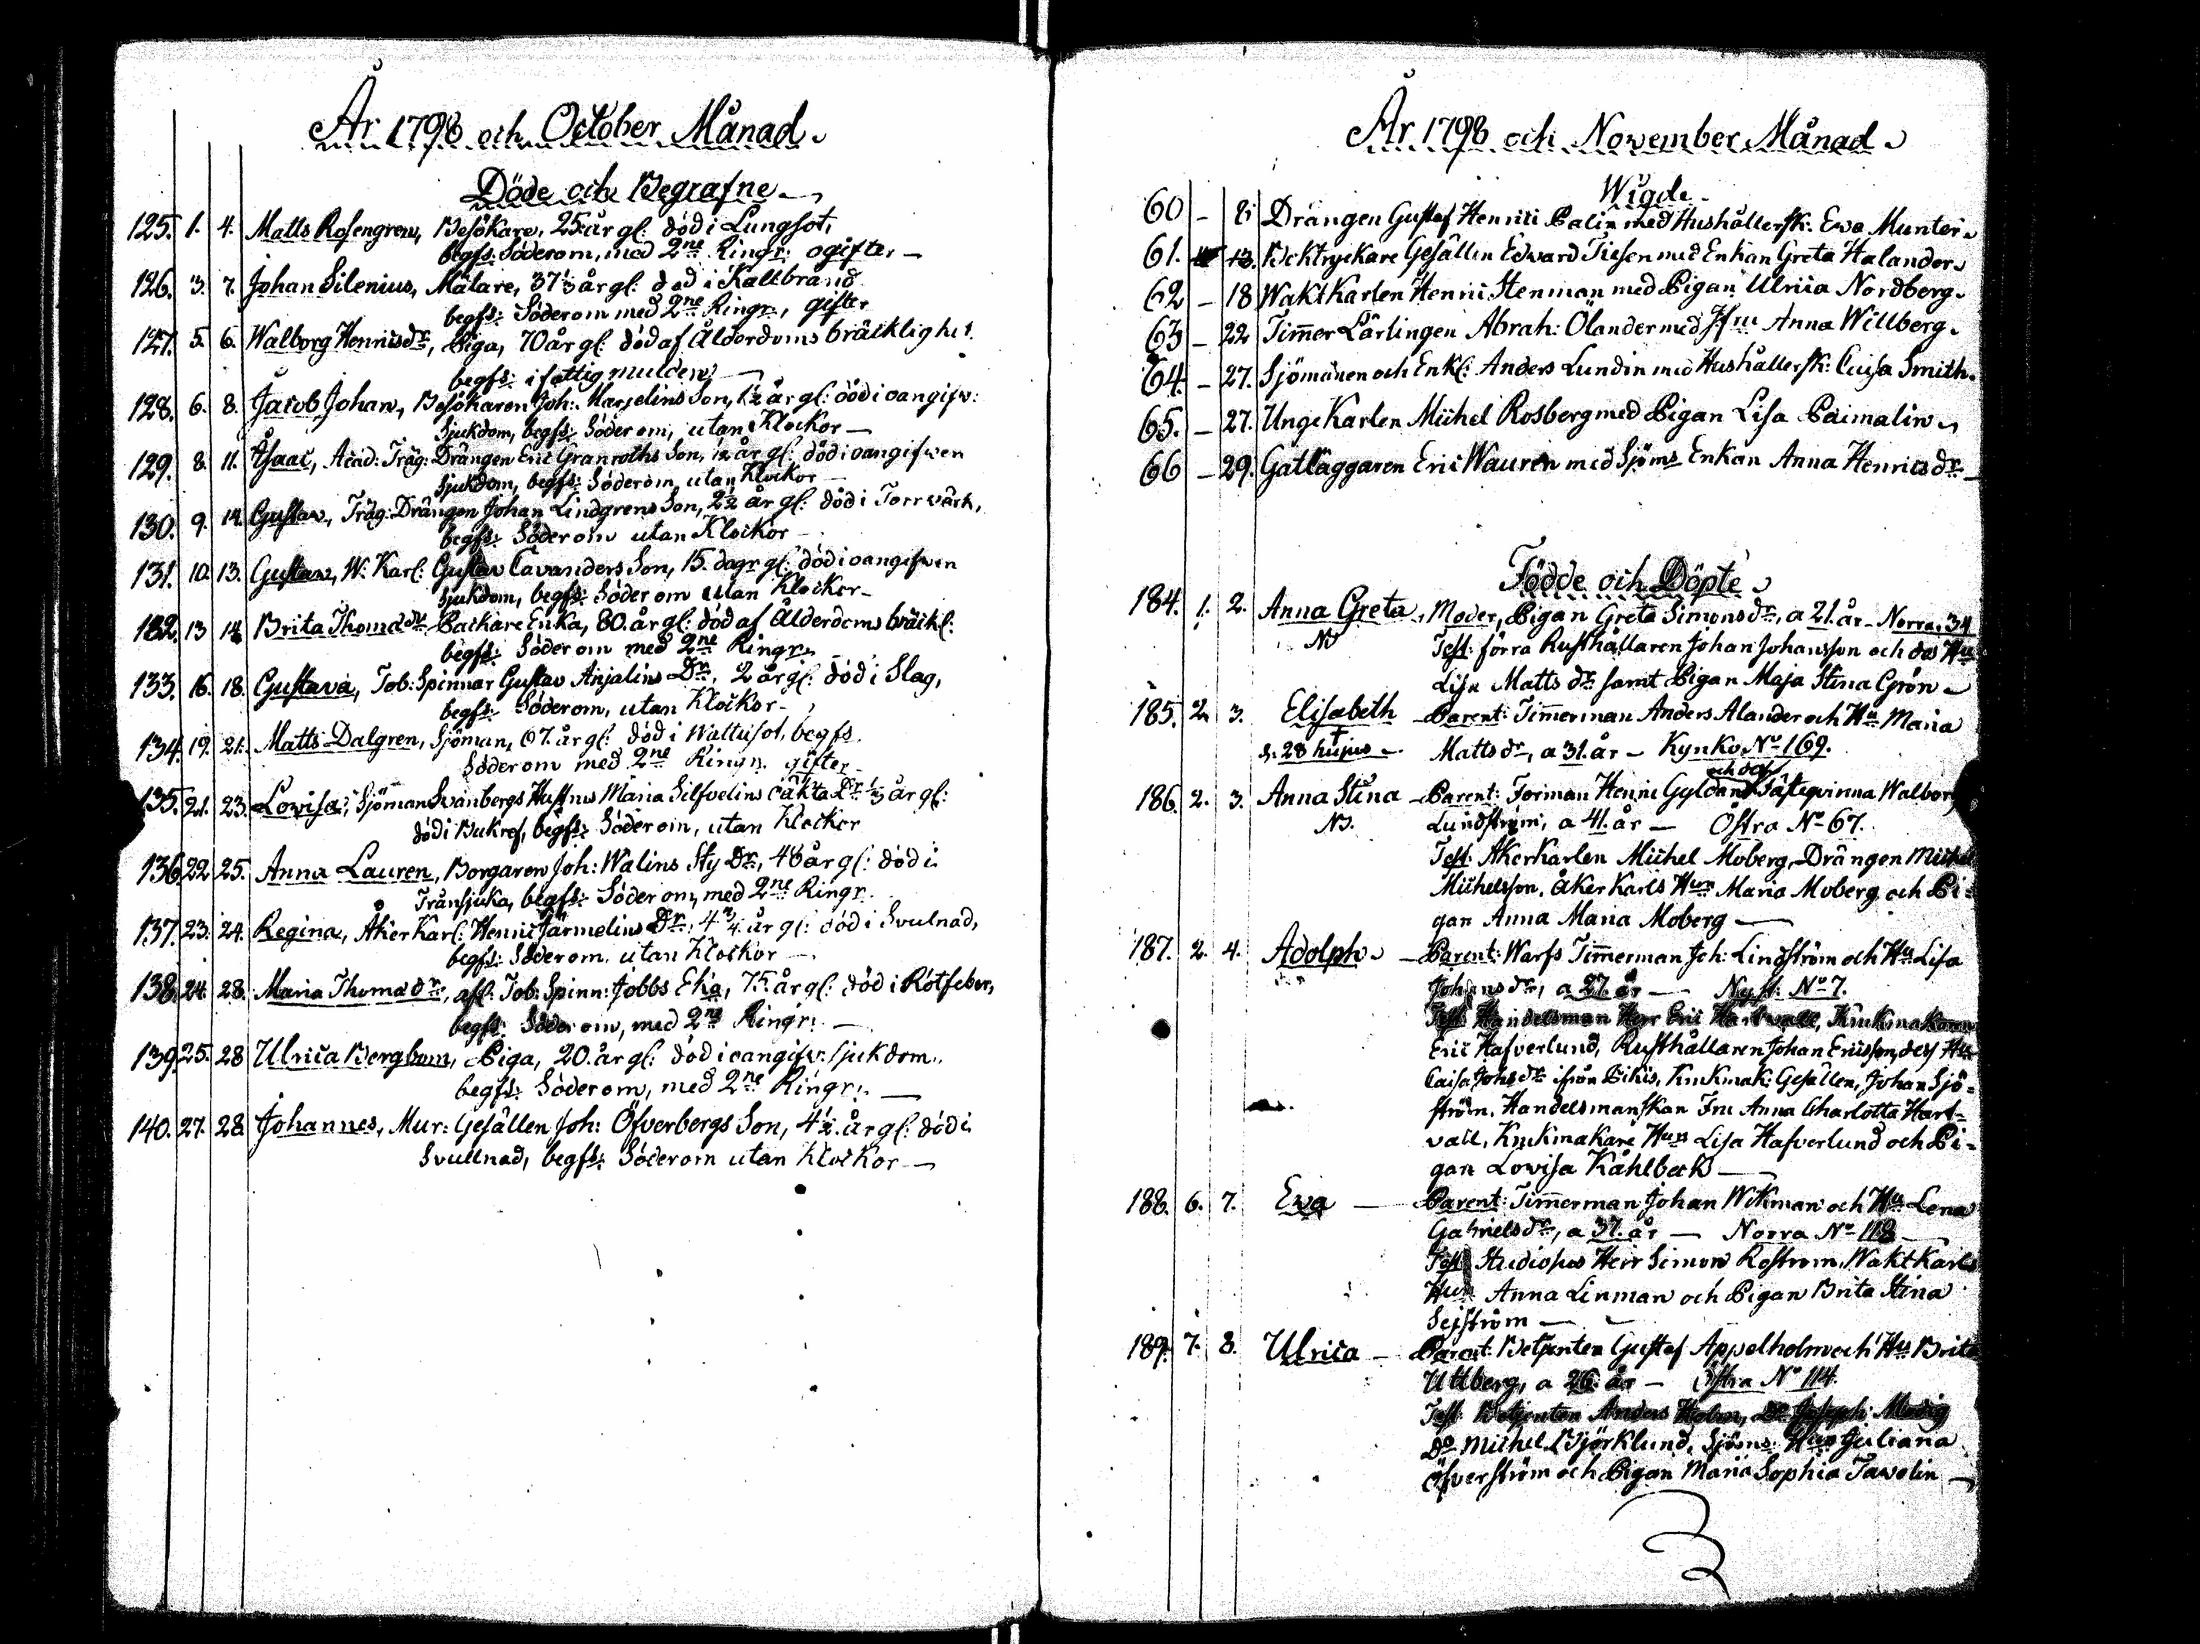 År 1798 och October Månad
Döde och Begrafne
125. 1. 4. Matts Rosengren, Besökare, 25. år gl: död i Lungsot,
begfs: Söderom, med 2ne Ringr: ogifter
126. 3. 7. Johan Silenius, Målare, 37½ år gl: död i Kallbrand
begfs: Söderom med 2ne Ringr:, gifter
127. 5. 6. Walborg Henricsdr, Piga, 70 år gl: död af Ålderdoms bräcklighet.
begfs: i fattig mullen
128. 6. 8. Jacob Johan, Besökaren Joh: Marjelins Son, 1½ år gl: död i oangifv:
Sjukdom, begfs: Söderom, utan Klockor
129. 8. 11. Isaac, Acad: Träg: Drängen Eric Granroths Son, ½ år gl: död i oangifwen
Sjukdom, begfs: Söderom utan Klockor
130. 9. 14. Gustav, Träg: Drängen Johan Lindgrens Son, 2½ år gl: död i Torrvärk,
begfs: Söderom utan Klockor
131. 10. 13. Gustav, W: Karl: Gustav Cavanders Son, 15. dagr gl: död i oangifven
Sjukdom, begfs: Söderom utan Klockor
132. 13 14 Brita Thomædr Backare Enka, 80. år gl: död af Ålderdoms bräckl:
begfs: Söderom med 2ne Ringr:
133. 16. 18. Gustava, Tob: Spinnar Gustav Anjalins Dr, 2 år gl: död i Slag,
begfs: Söderom, utan Klockor
134. 19. 21. Matts Dalgren, Sjöman, 67. år gl: död i Wattusot, begfs.
Söderom med 2ne Ringr. gifter
135. 21. 23. Lovisa, Sjöman Svanbergs Hustrus Maria Silfvelins oäkta Dr ⅓ år gl:
död i Bukref, begfs: Söderom, utan Klockor
136. 22 25. Anna Lauren, Borgaren Joh: Wålins Sty Dr, 46 år gl: död i
Trånsjuka, begfs: Söderom, med 2ne Ringr.
137. 23. 24. Regina, Åker Karl: Henric Järmelins Dr, 4¾ år gl: död i Svulnad,
begfs: Söderom. utan Klockor
138. 24. 28. Maria Thomædr, afl: Tob: Spinn: Jobbs Eka, 75. år gl: död i Rötfeber,
begfs: Söderom, med 2ne Ringr:
139. 25. 28 Ulrica Bergbom, Piga, 20. år gl: död i oangifv: sjukdom.
begfs: Söderom, med 2ne Ringr:
140. 27. 28. Johannes, Mur: Gesällen Joh: Öfverbergs Son, 4½ år gl: död i
Svullnad, begfs: Söderom utan Klockor
År 1798 och November Månad
Wigde
60 – 8. Drängen Gustaf Henric Palin med Hushållersk: Ewa Munter
61. 13. Boktryckare Gesällen Edward Tiesen med Enkan Greta Halander
62 – 18 Wakt Karlen Henric Stenman med Pigan Ulrica Nordberg
63 – 22 Timmer Lärlingen Abrah: Ölander med Jfru Anna Willberg
64. – 27. Sjömannen och Enkl: Anders Lundin med Hushållersk: Caisa Smith
65. – 27. Unge Karlen Michel Rosberg med Pigan Lisa Paimalin
66 – 29. Gatläggaren Eric Wauren med Sjöms Enkan Anna Henricsdr
Födde och Döpte
184. 1. 2. Anna Greta, Moder, Pigan Greta Simonsdr, a 21. år – Norra. 34
NS Test: förra Rusthållaren Johan Johansson och dess Hu
Lisa Matts dr samt Pigan Maja Stina Grön
185. 2. 3. Elisabeth – Parent: Timmerman Anders Alander och Hu Maria
† d. 28 hujus Mattsdr, a 31. år – Kynko No 169.
186. 2. 3. Anna Stina – Parent: Forman Henric Gyldan och dess Fästeqvinna Walborg
NS. Lundström, a 41. år – Östra No 67.
Test: Åkerkarlen Michel Moberg, Drängen Michel
Michelsson. Åker Karls Hun Maria Moberg och Pi-
gan Anna Maria Moberg
187. 2. 4. Adolph – Parent: Warfs Timmerman Joh: Lindström och Hu Lisa
Johansdr, a 27. år – Nyst: No 7.
Test: Handelsman Herr Eric Hartwall, Krukmakaren
Eric Hafverlund, Rusthållaren Johan Ericsson, dess Hu
Caisa Johsdr ifrån Pikis, Krukmak: Gesällen, Johan Sjö-
ström. Handelsmanskan Fru Anna Charlotta Hart-
vall, Krukmakare Hun Lisa Hafverlund och Pi-
gan Lovisa Kåhlbeck
188. 6. 7. Ewa – Parent: Timmerman Johan Wikman och Hu Lena
Gabrielsdr, a 37. år – Norra No 118
Test: Studiosus Herr Simon Rostrom, Wakt Karls
Hun Anna Linman och Pigan Brita Stina
Sejström
189. 7. 8. Ulrica – Parent: Betjenten Gustaf Appelholm och Hu Brita
Uttberg, a 26. år – Östra No 114.
Test: Betjenten Anders Holm, Do Joseph
Do Michel Björklund, Sjöms: Hun Juliana
Öfverström och Pigan Maria Sophia Tavolin